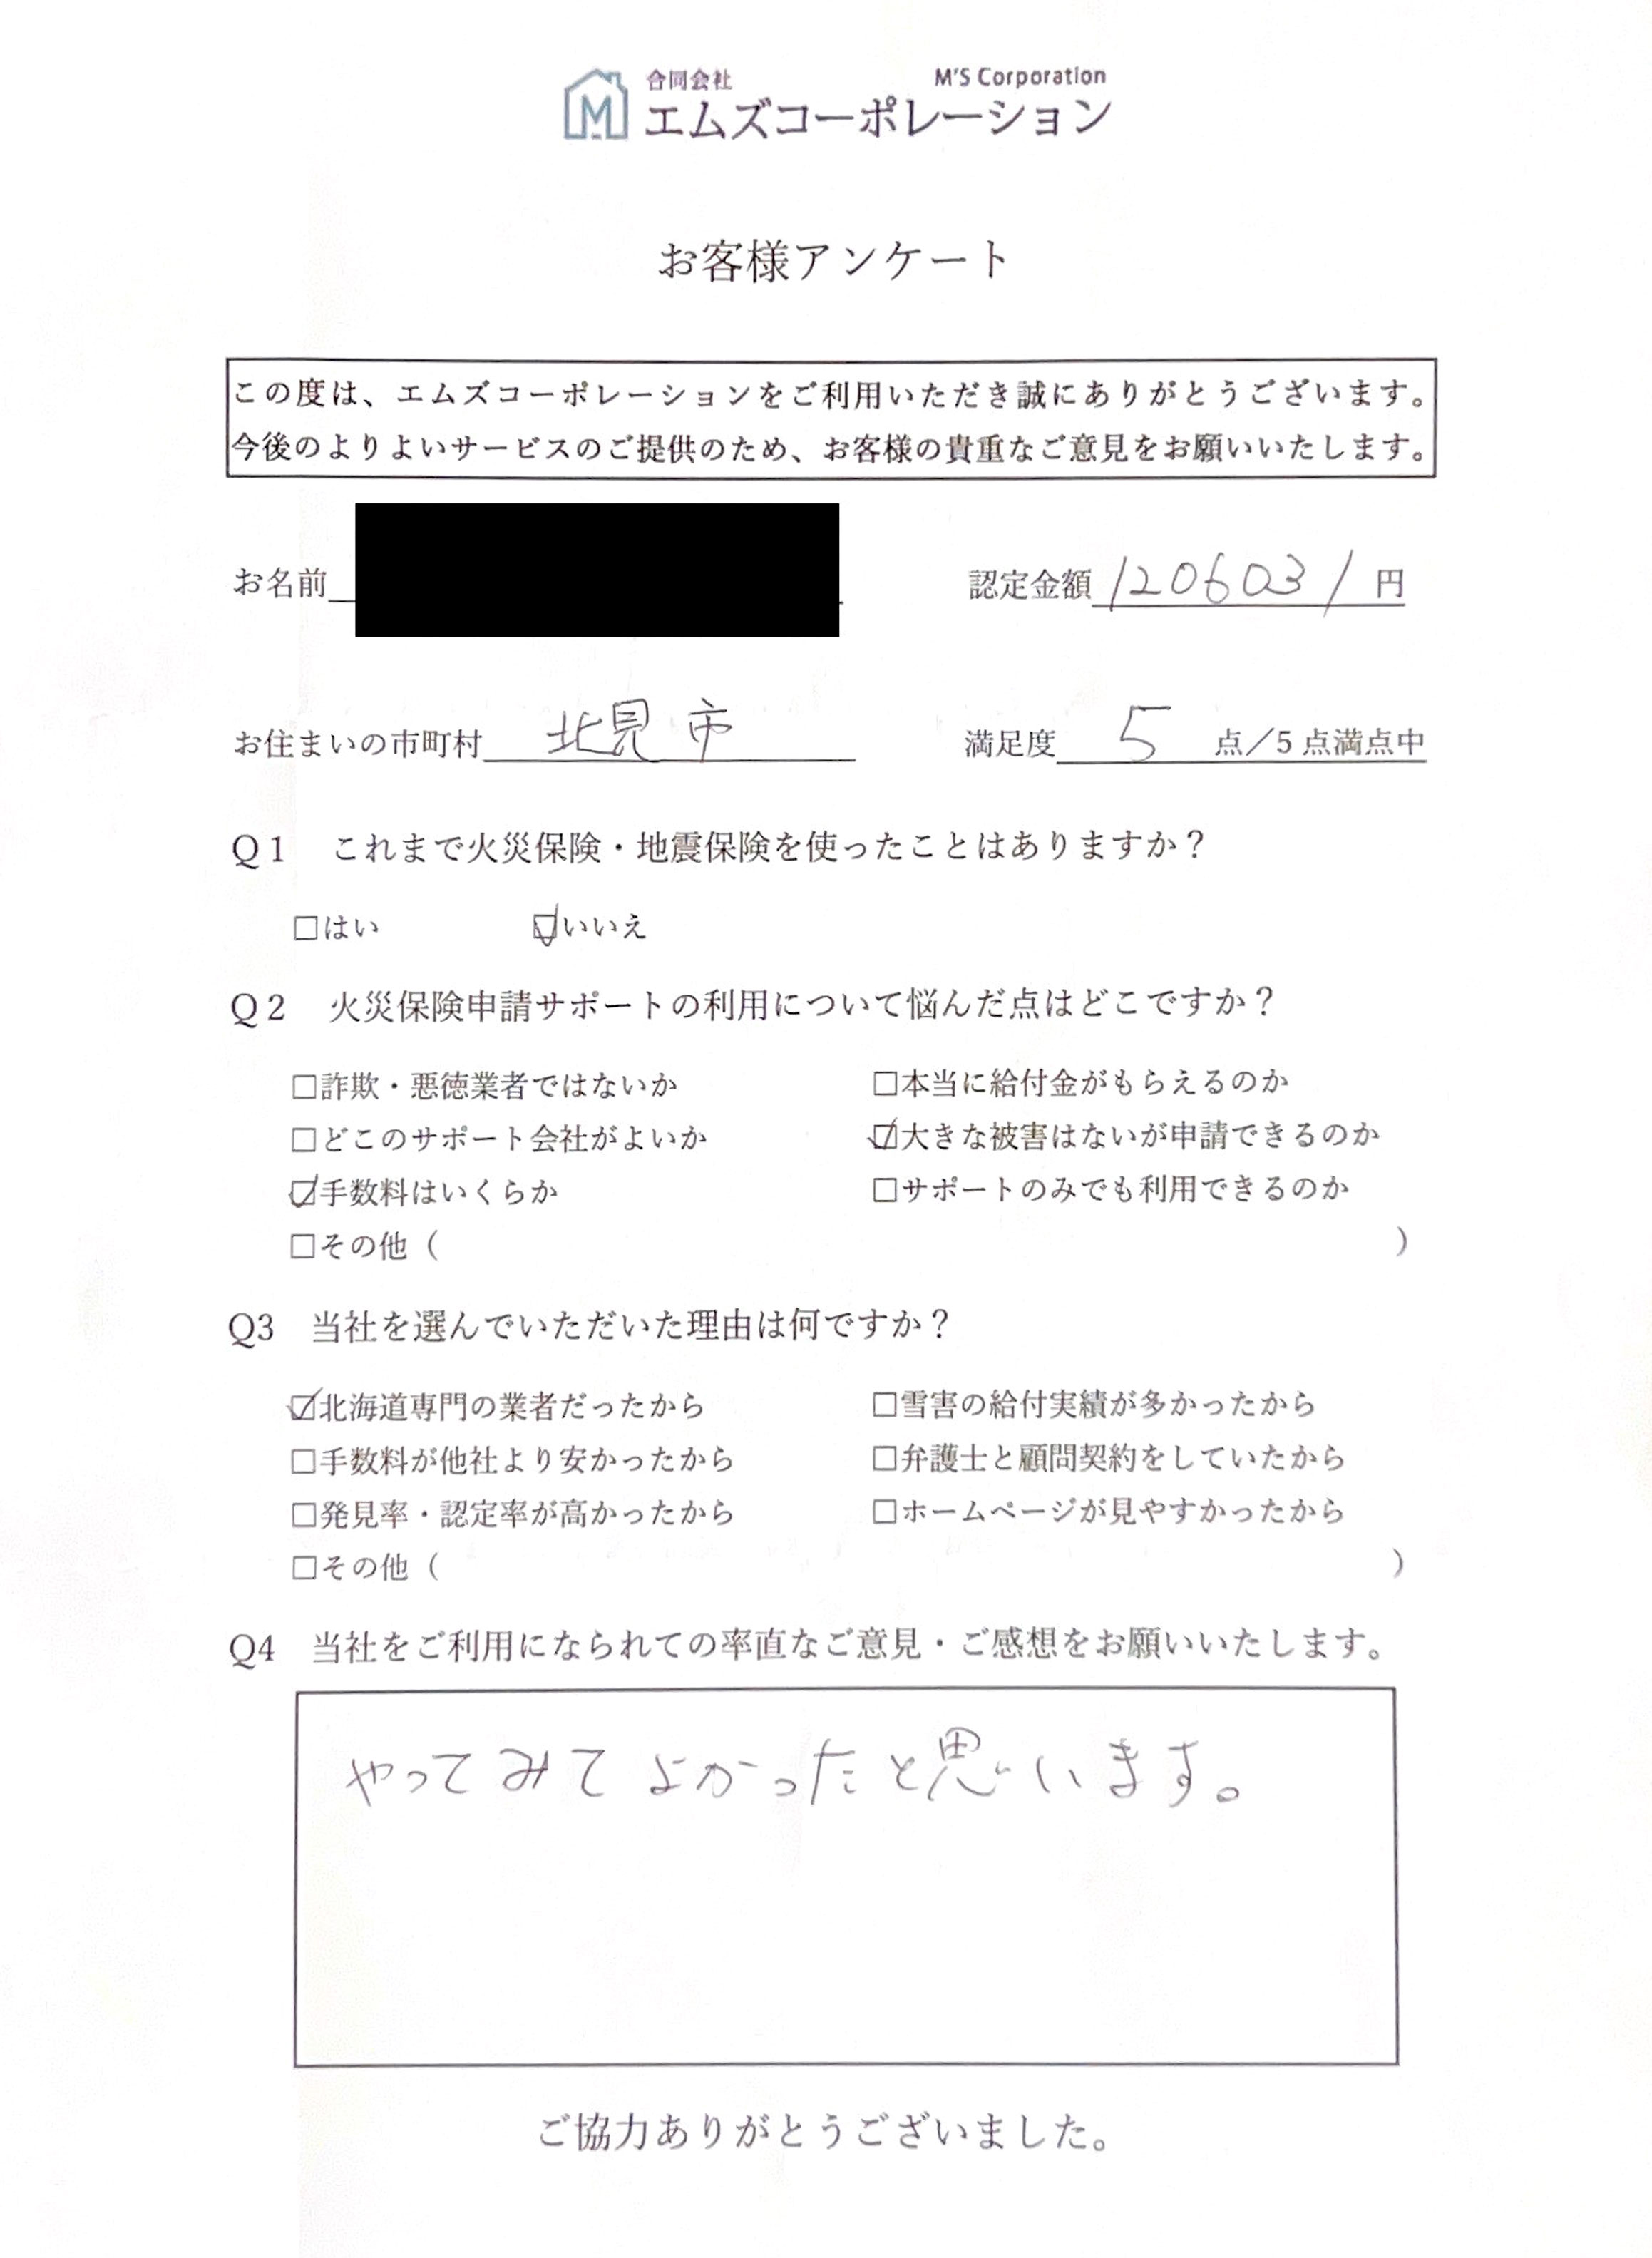 合同会社 M'S Corporation
エムズコーポレーション
お客様アンケート
この度は、エムズコーポレーションをご利用いただき誠にありがとうございます。
今後のよりよいサービスのご提供のため、お客様の貴重なご意見をお願いいたします。
お名前 認定金額 1206031 円
お住まいの市町村 北見市 満足度 5 点／5点満点中
Q1 これまで火災保険・地震保険を使ったことはありますか？
□はい ☑いいえ
Q2 火災保険申請サポートの利用について悩んだ点はどこですか？
□詐欺・悪徳業者ではないか □本当に給付金がもらえるのか
□どこのサポート会社がよいか ☑大きな被害はないが申請できるのか
☑手数料はいくらか □サポートのみでも利用できるのか
□その他（ ）
Q3 当社を選んでいただいた理由は何ですか？
☑北海道専門の業者だったから □雪害の給付実績が多かったから
□手数料が他社より安かったから □弁護士と顧問契約をしていたから
□発見率・認定率が高かったから □ホームページが見やすかったから
□その他（ ）
Q4 当社をご利用になられての率直なご意見・ご感想をお願いいたします。
やってみてよかったと思います。
ご協力ありがとうございました。